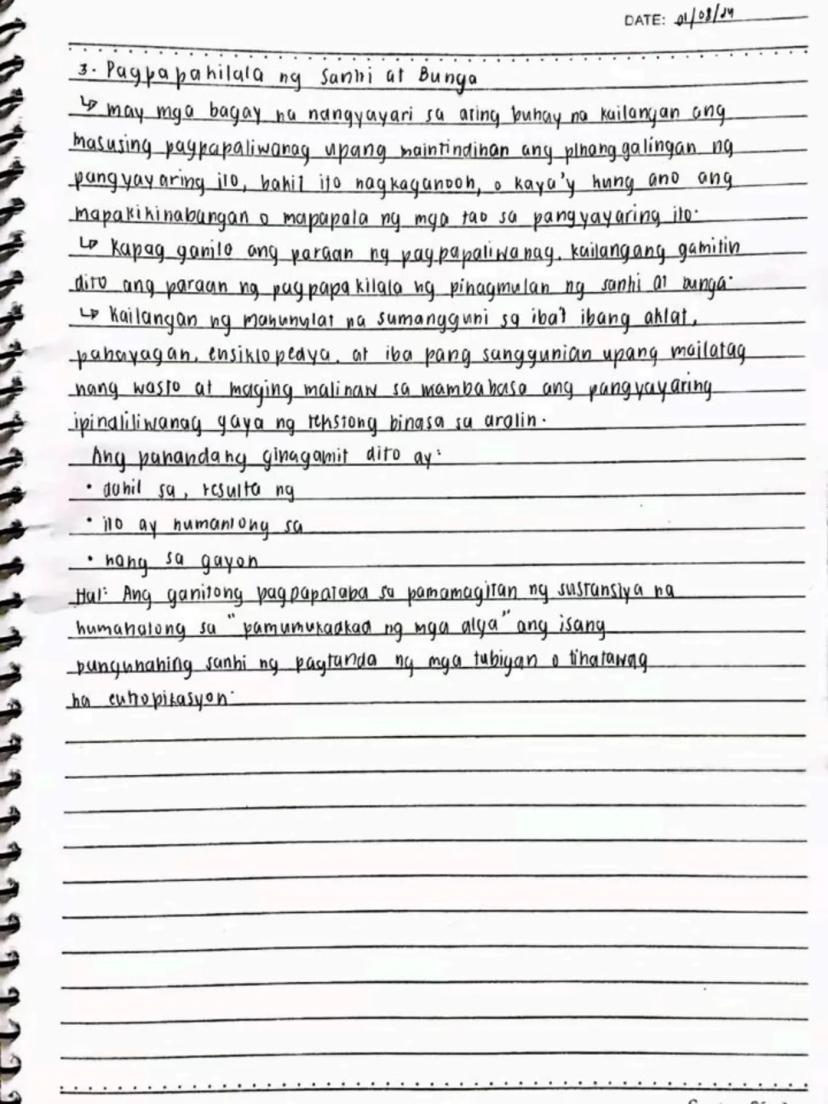 DATE: 01/08/24
3. Pagpapakilala ng Sanhi at Bunga
↳ may mga bagay na nangyayari sa ating buhay na kailangan ang
masusing pagpapaliwanag upang maintindihan ang pinanggalingan ng
pangyayaring ito, bakit ito nagkaganoon, o kaya'y kung ano ang
mapakikinabangan o mapapala ng mga tao sa pangyayaring ito.
↳ Kapag ganito ang paraan ng pagpapaliwanag, kailangang gamitin
dito ang paraan ng pagpapakilala ng pinagmulan ng sanhi at bunga.
↳ Kailangan ng manunulat na sumangguni sa iba't ibang aklat,
pahayagan, ensiklopedya, at iba pang sanggunian upang mailatag
nang wasto at maging malinaw sa mambabasa ang pangyayaring
ipinaliliwanag gaya ng tekstong binasa sa aralin.
Ang panandang ginagamit dito ay:
• dahil sa, resulta ng
• ito ay humantong sa
• nang sa gayon
Hal: Ang ganitong pagpapataba sa pamamagitan ng sustansiya na
humahatong sa "pamumukadkad ng mga alga" ang isang
pangunahing sanhi ng pagtanda ng mga tubigan o tinatawag
na eutropikasyon.